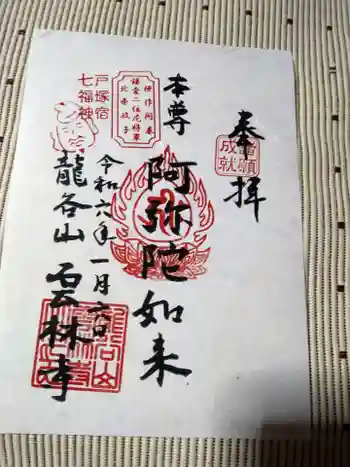 奉拝
諸願
成就
本尊
阿弥陀如来
令和六年一月六日
戸塚宿
七福神
龍谷山
雲林寺